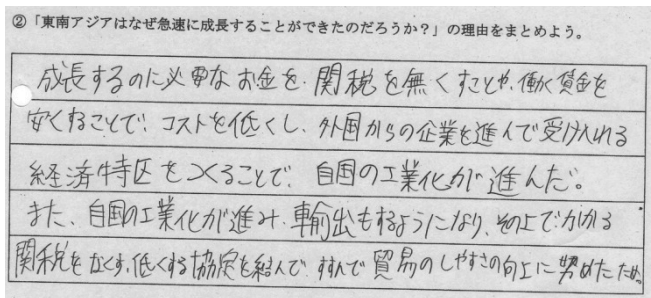 ②「東南アジアはなぜ急速に成長することができたのだろうか？」の理由をまとめよう。
成長するのに必要なお金を、関税を無くすことや、働く賃金を
安くすることで、コストを低くし、外国からの企業を進んで受け入れる
経済特区をつくることで、自国の工業化が進んだ。
また、自国の工業化が進み、輸出もするようになり、その上でかかる
関税をなくす、低くする協定を結んで、すすんで貿易のしやすさの向上に努めたため。